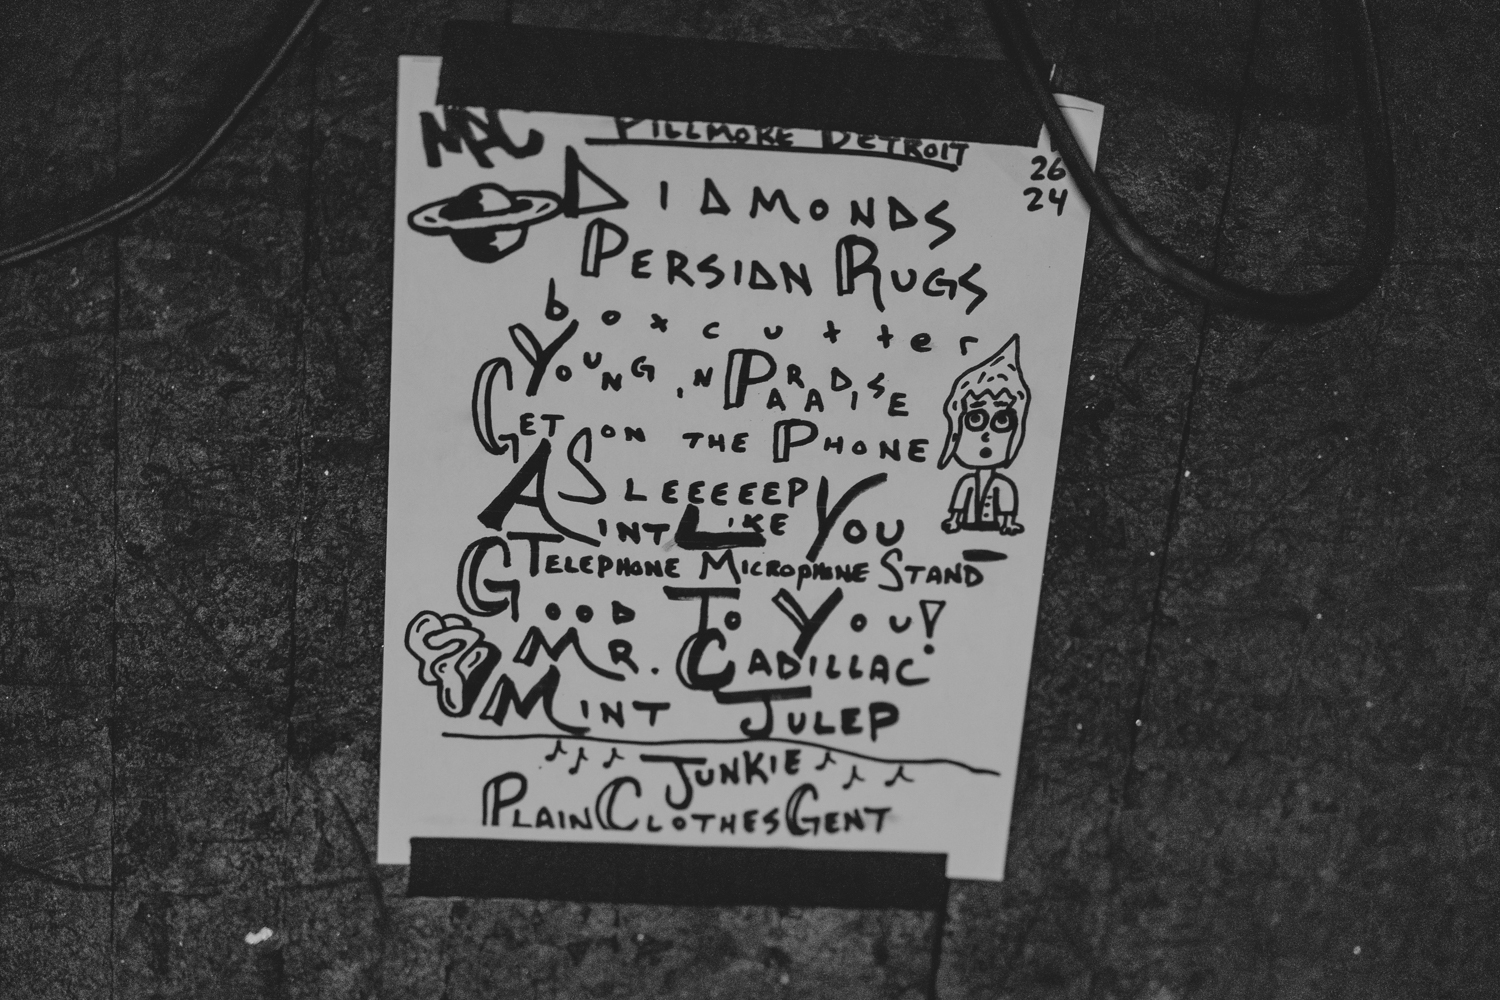 FILLMORE DETROIT
26
24
DIAMONDS
PERSIAN RUGS
boxcutter
YOUNG IN PARADISE
GET ON THE PHONE
ASLEEEEEP
AINT LIKE YOU
TELEPHONE MICROPHONE STAND
GOOD TO YOU!
MR. CADILLAC
MINT JULEP
JUNKIE
PLAIN CLOTHES GENT